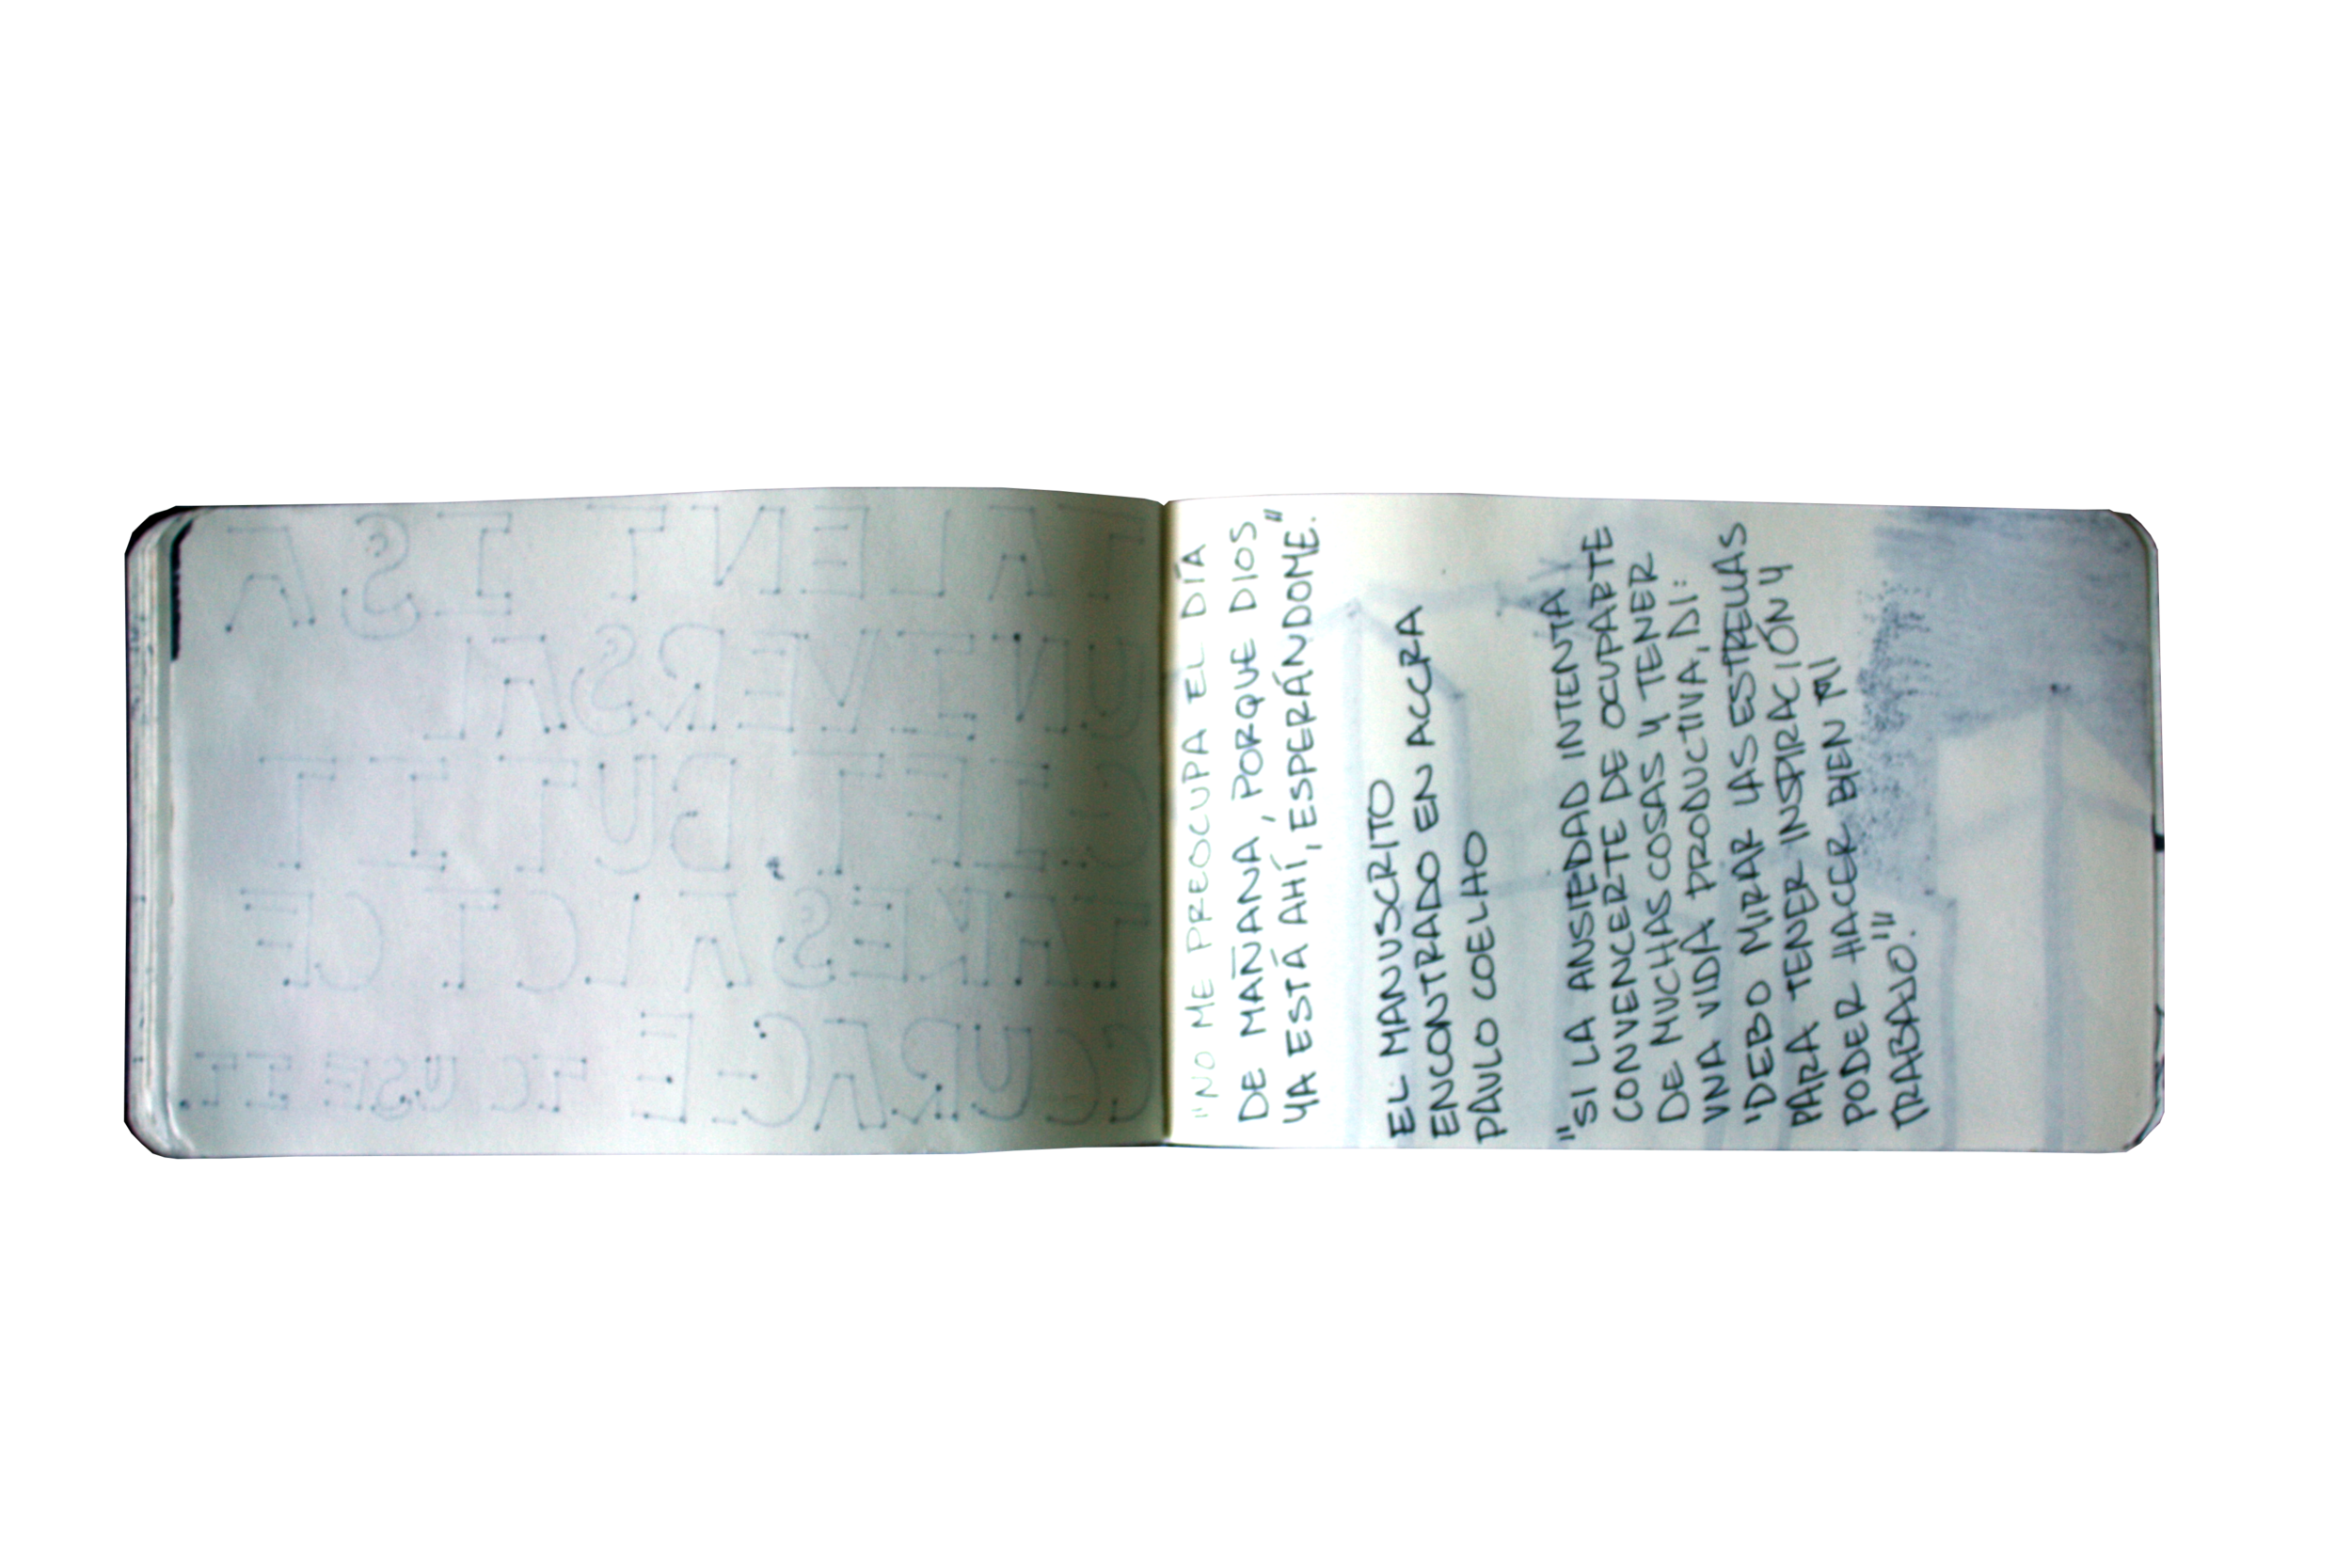 TALENT IS A
UNIVERSAL
GIFT BUT IT
TAKES A LOT OF
COURAGE TO USE IT
"NO ME PREOCUPA EL DÍA
DE MAÑANA, PORQUE DIOS
YA ESTÁ AHÍ, ESPERÁNDOME."
EL MANUSCRITO
ENCONTRADO EN ACCRA
PAULO COELHO
"SI LA ANSIEDAD INTENTA
CONVENCERTE DE OCUPARTE
DE MUCHAS COSAS Y TENER
UNA VIDA PRODUCTIVA, DI:
'DEBO MIRAR LAS ESTRELLAS
PARA TENER INSPIRACIÓN Y
PODER HACER BIEN MI
TRABAJO.'"